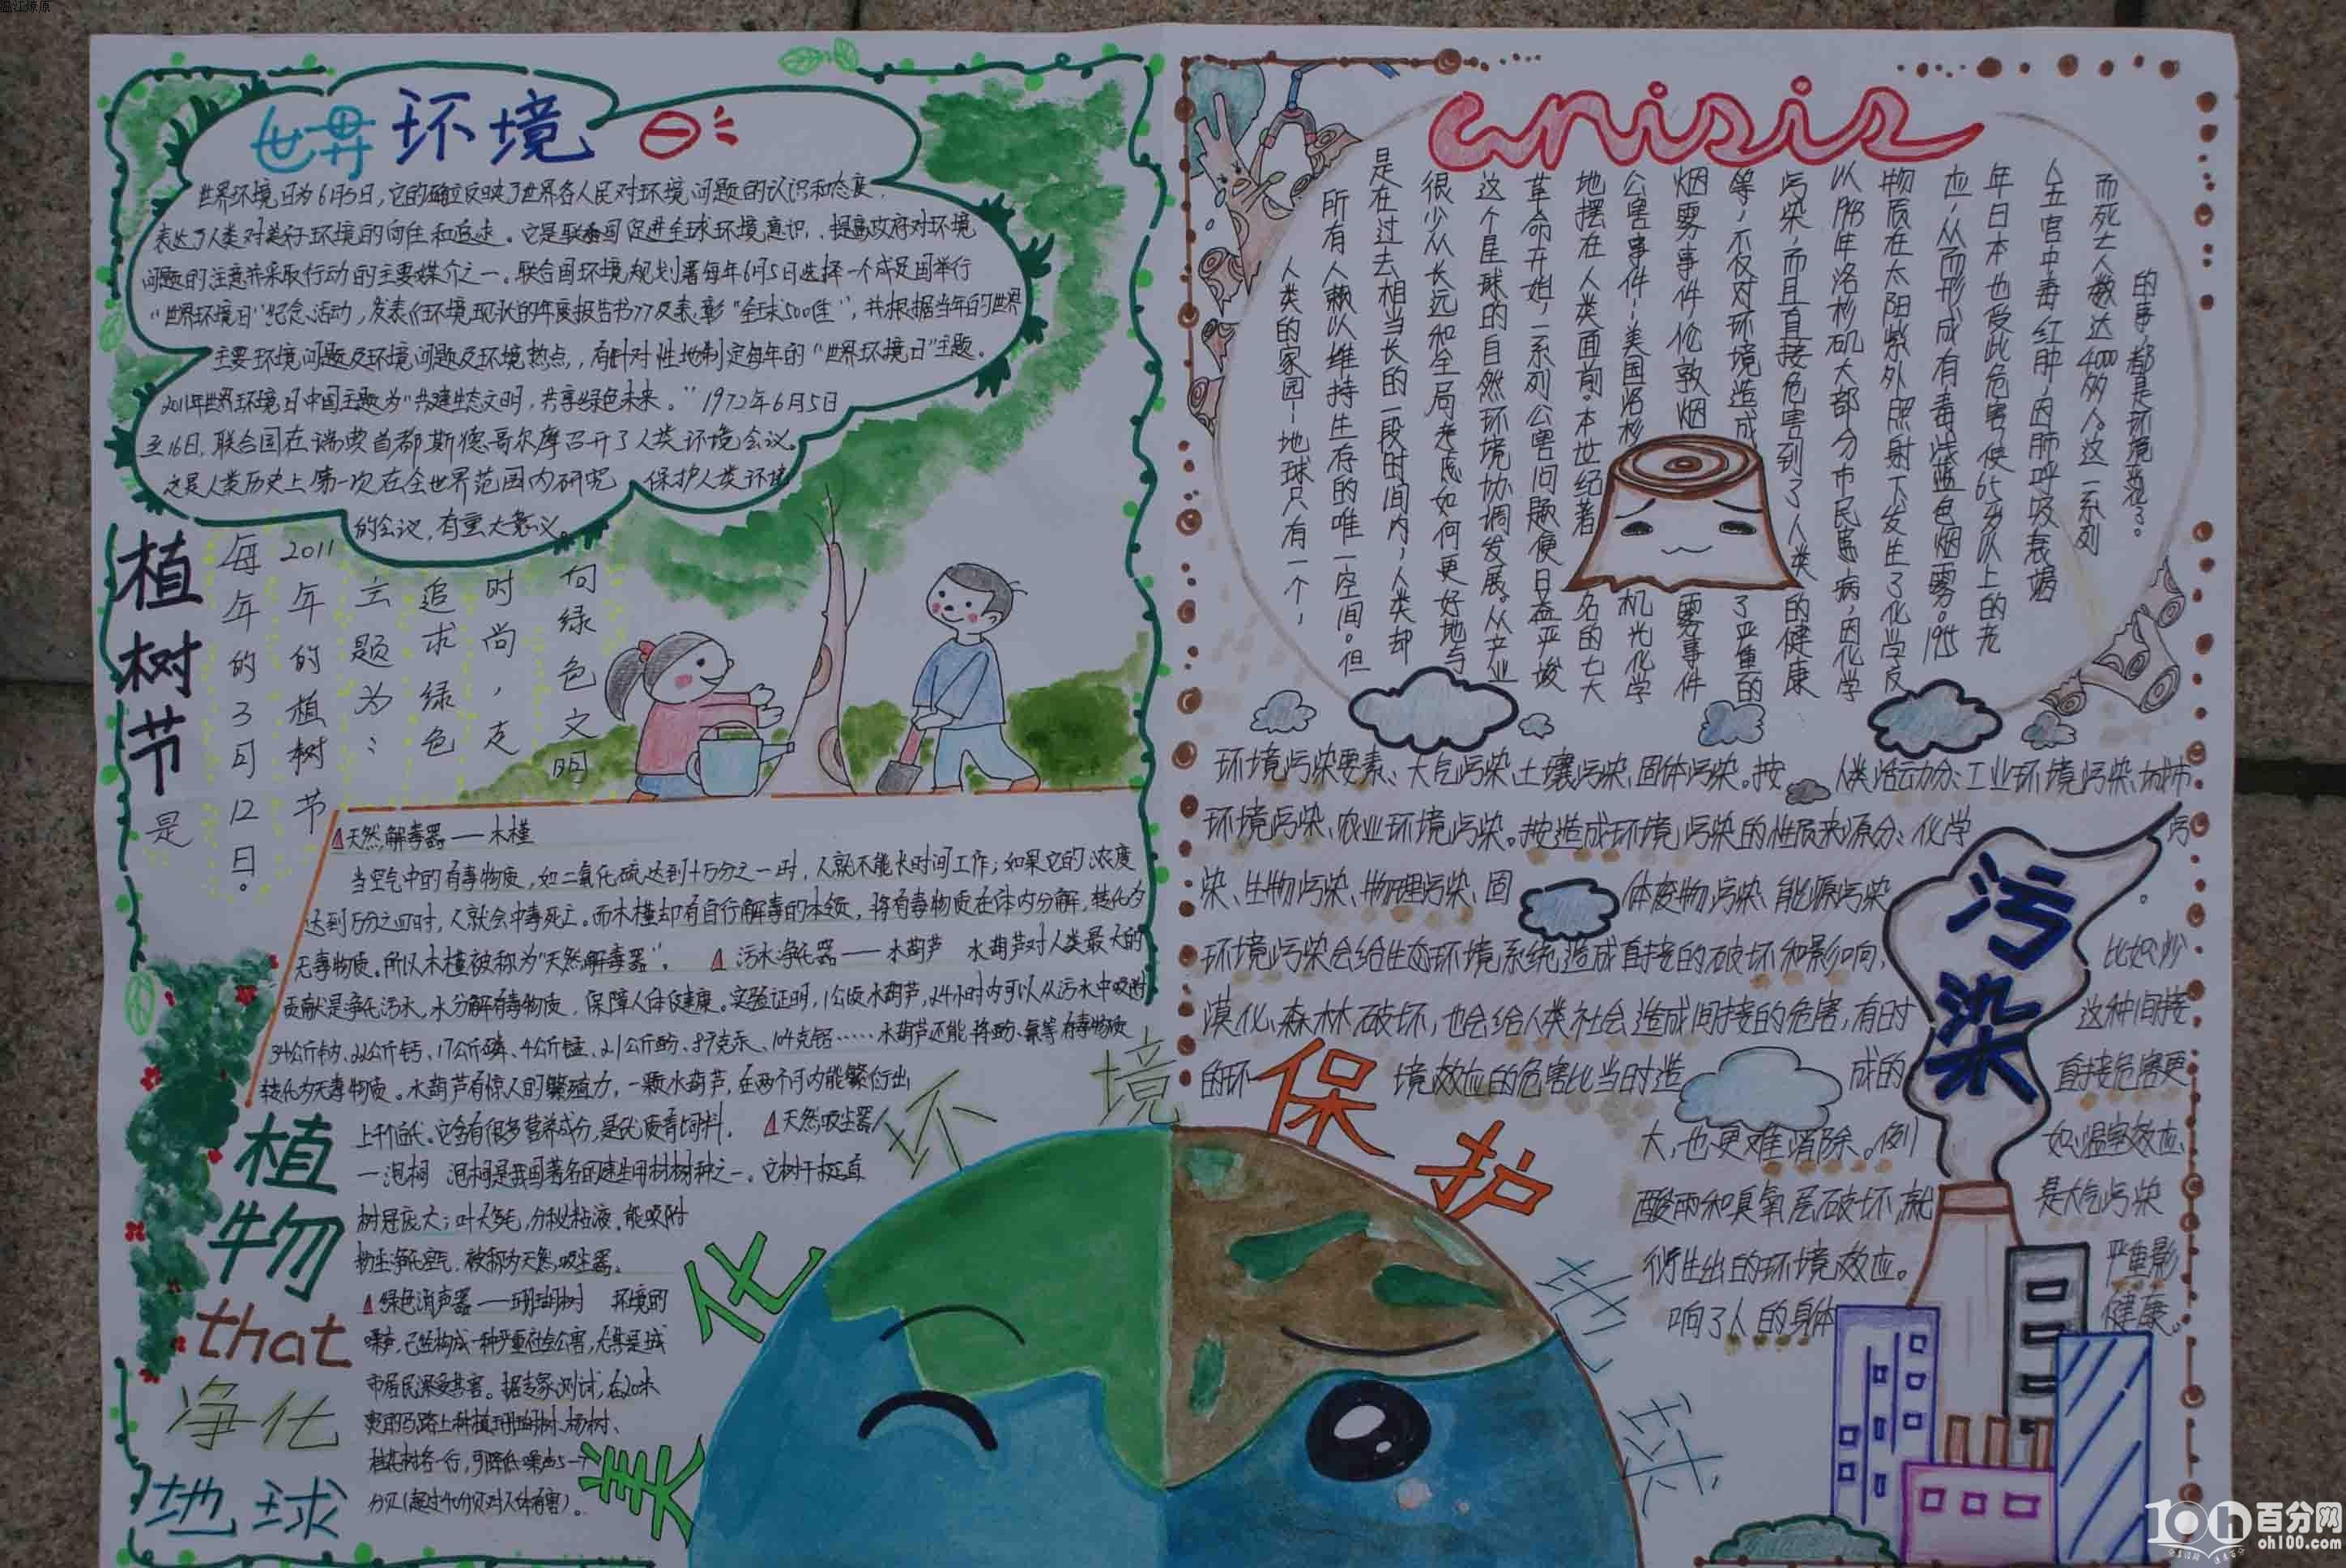 温江燎原
世界环境日
世界环境日为6月5日，它的确立反映了世界各人民对环境问题的认识和态度，
表达了人类对美好环境的向往和追求。它是联合国促进全球环境意识，提高政府对环境
问题的注意并采取行动的主要媒介之一。联合国环境规划署每年6月5日选择一个成员国举行
“世界环境日”纪念活动，发表《环境现状的年度报告书》及表彰“全球500佳”，并根据当年的世界
主要环境问题及环境问题及环境热点，有针对性地制定每年的“世界环境日”主题。
2011年世界环境日中国主题为“共建生态文明，共享绿色未来。”1972年6月5日
至16日，联合国在瑞典首都斯德哥尔摩召开了人类环境会议。
这是人类历史上第一次在全世界范围内研究 保护人类环境
的会议，有重大意义。
植树节是
每年的3月12日。
2011年的植树节
主题为：
追求绿色
时尚，走
向绿色文明
△天然解毒器——木槿
当空气中的有毒物质，如二氧化硫达到十万分之一时，人就不能长时间工作；如果它的浓度
达到万分之四时，人就会中毒死亡。而木槿却有自行解毒的本领，将有毒物质在体内分解，转化为
无毒物质。所以木槿被称为“天然解毒器”。 △污水净化器——水葫芦 水葫芦对人类最大的
贡献是净化污水，水分解有毒物质，保障人体健康。实验证明，1公顷水葫芦，24小时内可以从污水中吸附
34公斤钠、22公斤钙、17公斤磷、4公斤锰、2.1公斤酚、89克汞、104克铝……水葫芦还能将酚、氰等有毒物质
转化为无毒物质。水葫芦有惊人的繁殖力，一颗水葫芦，在两个月内能繁衍出
上千后代。它含有很多营养成分，是优质青饲料。 △天然吸尘器
—泡桐 泡桐是我国著名的速生用材树种之一。它树干挺直
树冠庞大；叶大多毛，分泌粘液，能吸附
粉尘净化空气，被称为天然吸尘器。
△绿色消声器——珊瑚树 环境的
噪声，已经构成一种严重社会公害，尤其是城
市居民深受其害。据专家测试，在20米
宽的马路上种植珊瑚树、杨树、
桂花树各一行，可降低噪声5—7
分贝（超过40分贝对人体有害）。
植物
that
净化
地球
美化环境
保护地球
crisis
人类的家园—地球只有一个，
所有人赖以维持生存的唯一空间。但
是在过去相当长的一段时间内，人类却
很少从长远和全局考虑如何更好地与
这个星球的自然环境协调发展。从产业
革命开始，一系列公害问题便日益严峻
地摆在人类面前。本世纪著名的七大
公害事件—美国洛杉机光化学
烟雾事件伦敦烟雾事件
等，不仅对环境造成了严重的
污染，而且直接危害到了人类的健康
以1943年洛杉矶大部分市民患病，因化学
物质在太阳紫外照射下发生了化学反
应，从而形成有毒浅蓝色烟雾。1955
年日本也受此危害，使65岁以上的老
人五官中毒红肿，因肺呼吸衰竭
而死亡人数达4000多人。这一系列
的事，都是环境惹祸了。
环境污染要素、大气污染、土壤污染、固体污染。按人类活动分：工业环境污染、城市
环境污染、农业环境污染。按造成环境污染的性质来源分：化学污
染、生物污染、物理污染、固体废物污染、能源污染。
环境污染会给生态环境系统造成直接的破坏和影响，比如沙
漠化、森林破坏，也会给人类社会造成间接的危害，有时这种间接
的环境效应的危害比当时造成的直接危害更
大，也更难消除。例如温室效应、
酸雨和臭氧层破坏就是大气污染
衍生出的环境效应。严重影
响了人的身体健康。
污染
100h百分网
oh100.com